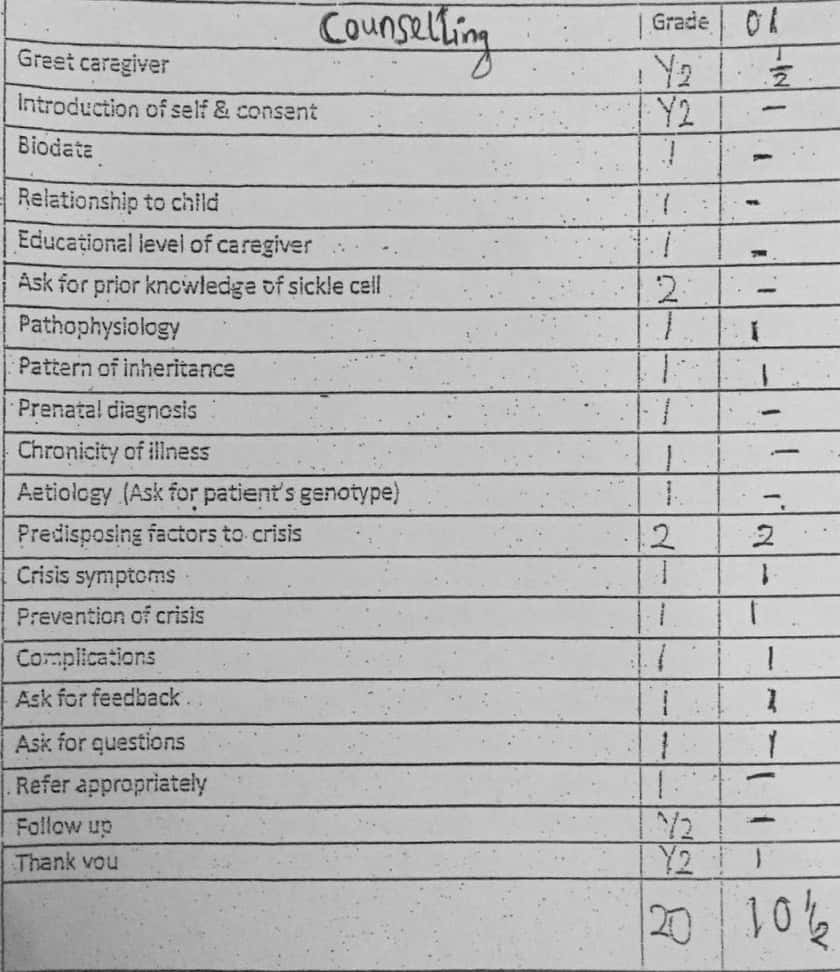 Counselling | Grade | 01
Greet caregiver | 1/2 | 1/2
Introduction of self & consent | 1/2 | -
Biodata | 1 | -
Relationship to child | 1 | -
Educational level of caregiver | 1 | -
Ask for prior knowledge of sickle cell | 2 | -
Pathophysiology | 1 | 1
Pattern of inheritance | 1 | 1
Prenatal diagnosis | 1 | -
Chronicity of illness | 1 | -
Aetiology (Ask for patient's genotype) | 1 | -
Predisposing factors to crisis | 2 | 2
Crisis symptoms | 1 | 1
Prevention of crisis | 1 | 1
Complications | 1 | 1
Ask for feedback | 1 | 1
Ask for questions | 1 | 1
Refer appropriately | 1 | -
Follow up | 1/2 | -
Thank you | 1/2 | 1
20 | 10 1/2